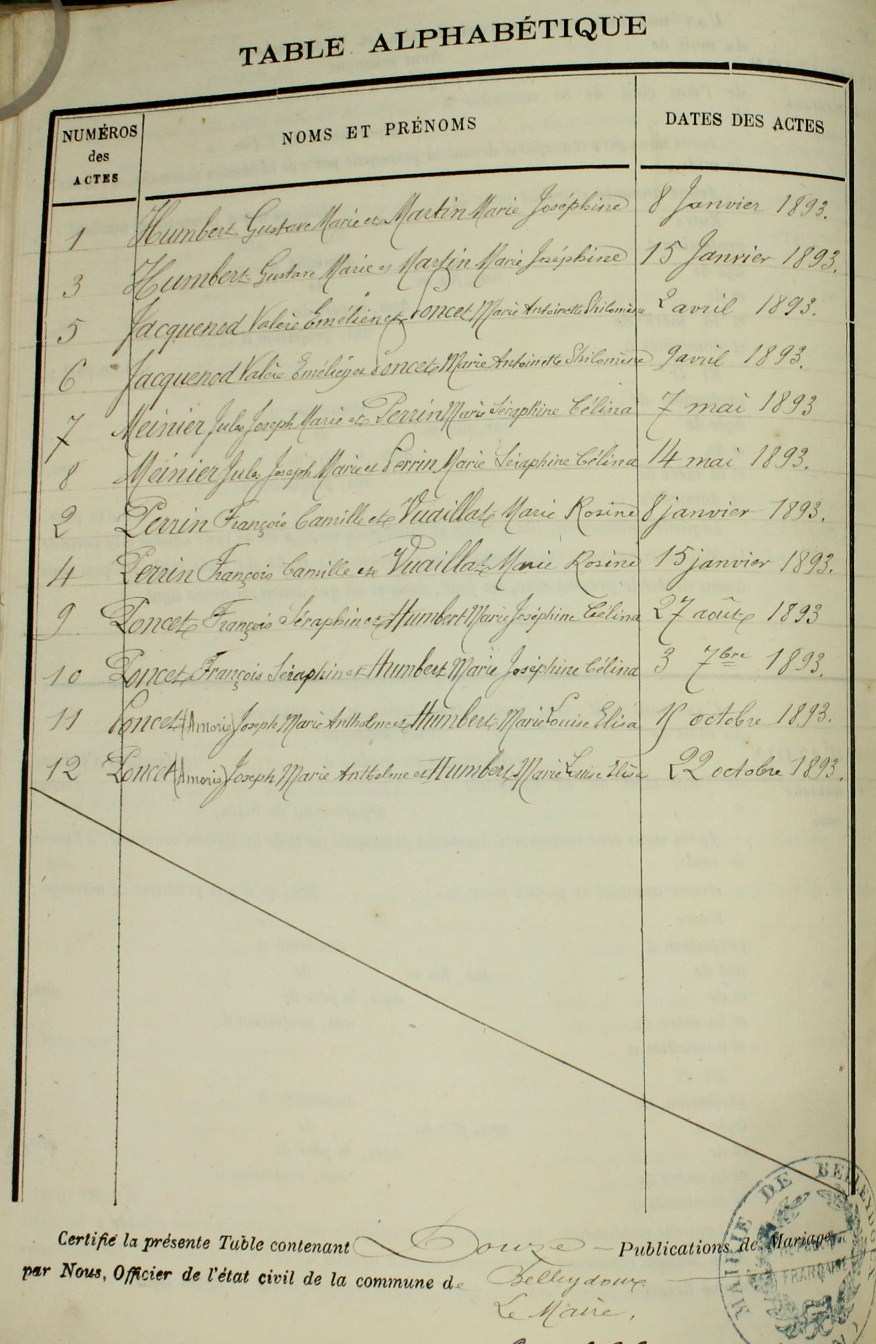 TABLE ALPHABÉTIQUE
NUMÉROS des ACTES NOMS ET PRÉNOMS DATES DES ACTES
1 Humbert Gustave Marie et Martin Marie Joséphine 8 Janvier 1893.
3 Humbert Gustave Marie et Martin Marie Joséphine 15 Janvier 1893.
5 Jacquenod Valérie Emélien et Poncet Marie Antoinette Philomène 2 avril 1893.
6 Jacquenod Valérie Emélien et Poncet Marie Antoinette Philomène 9 avril 1893.
7 Meinier Jules Joseph Marie et Perrin Marie Séraphine Célina 7 mai 1893
8 Meinier Jules Joseph Marie et Perrin Marie Séraphine Célina 14 mai 1893.
2 Perrin François Camille et Vuaillat Marie Rosine 8 janvier 1893.
4 Perrin François Camille et Vuaillat Marie Rosine 15 janvier 1893.
9 Poncet François Séraphin et Humbert Marie Joséphine Célina 27 août 1893
10 Poncet François Séraphin et Humbert Marie Joséphine Célina 3 7bre 1893.
11 Poncet (Amoris) Joseph Marie Anthelme et Humbert Marie Louise Elisa 15 octobre 1893.
12 Poncet (Amoris) Joseph Marie Anthelme et Humbert Marie Louise Elisa 22 octobre 1893.
Certifié la présente Table contenant Douze Publications de Mariages
par Nous, Officier de l'état civil de la commune de Belleydoux
Le Maire,
MAIRIE DE BELLEYDOUX
FRANÇAISE